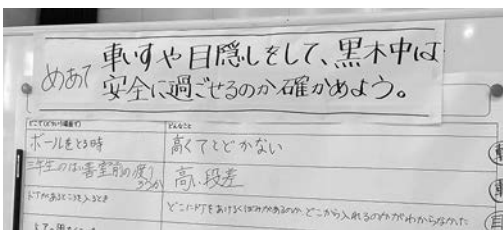 めあて 車いすや目隠しをして、黒木中は
安全に過ごせるのか確かめよう。
どんなこと
ボールをとる時 高くてとどかない
三年生の 室前の渡り
ろうか 高い段差
ドアがあるところを入るとき どこにドアをあけるくぼみがあるのか どこから入れるのかがわからなかった